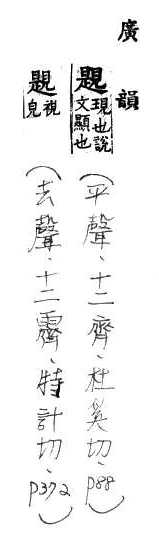 廣韻
𧡨現也說
文顯也
(平聲、十二齊、杜奚切、p88)
𧡨視
皃
(去聲、十二霽、特計切、p372)